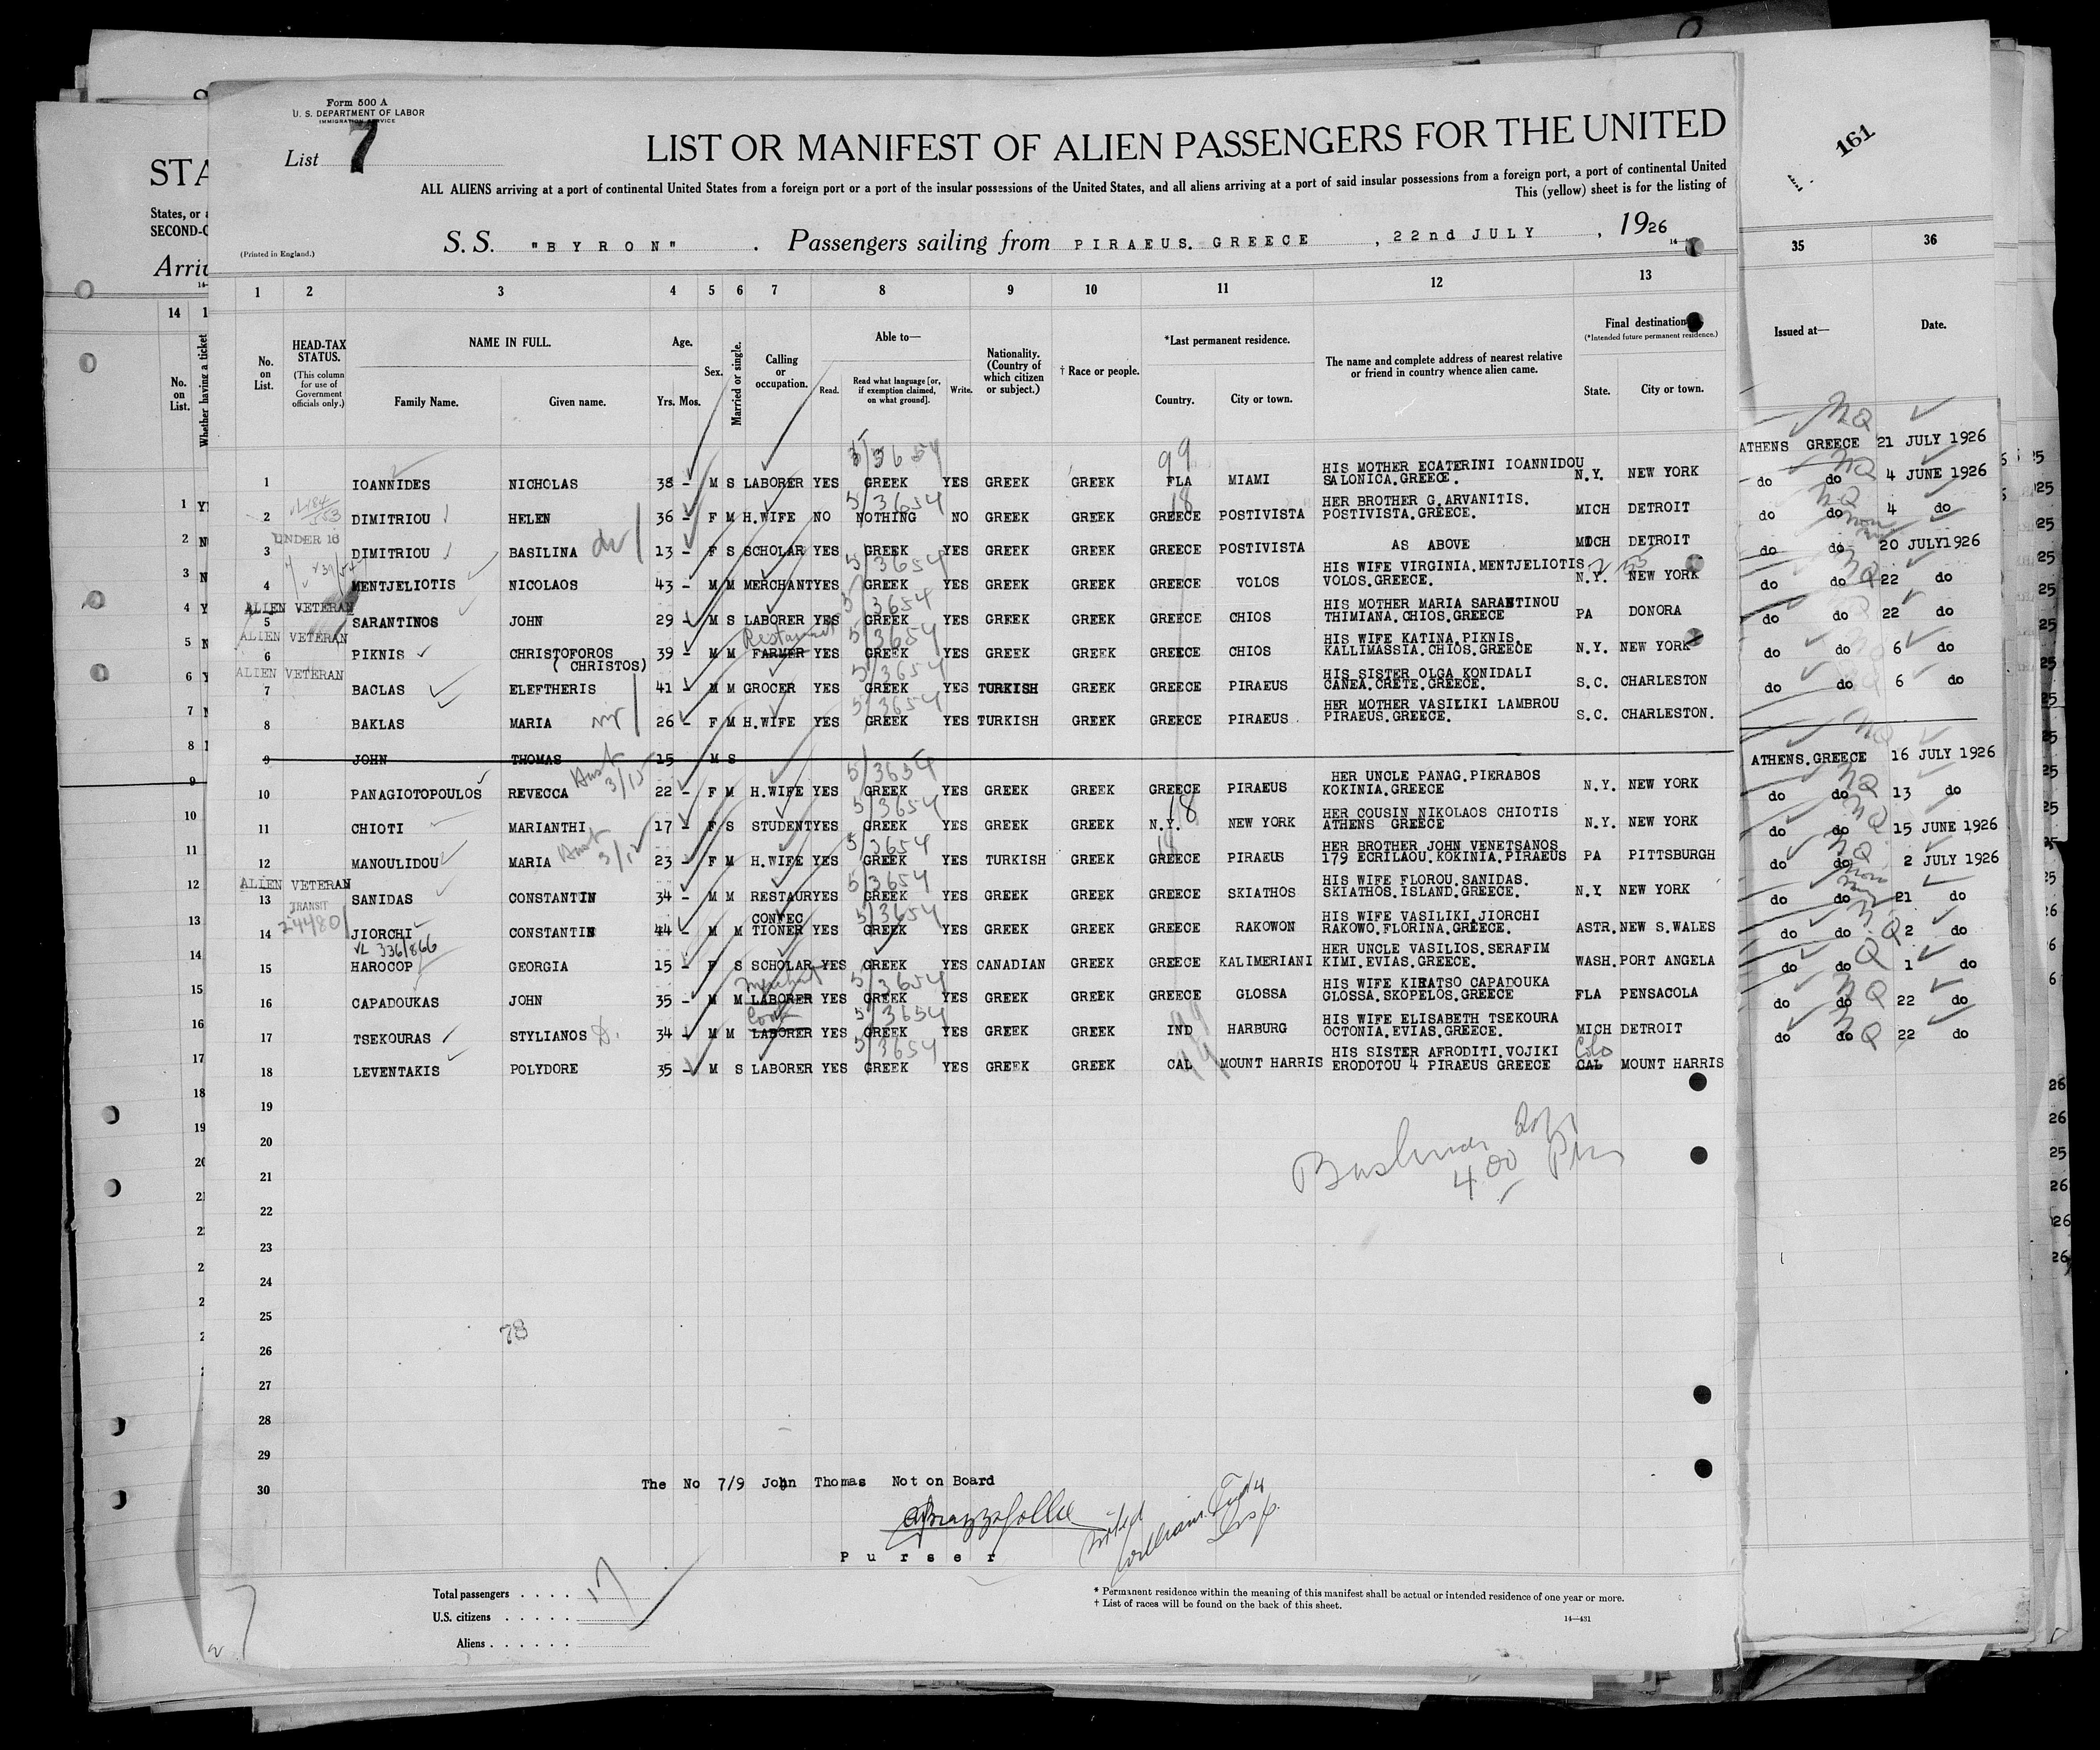 Form 500 A
U. S. DEPARTMENT OF LABOR
IMMIGRATION SERVICE
List 7
LIST OR MANIFEST OF ALIEN PASSENGERS FOR THE UNITED
ALL ALIENS arriving at a port of continental United States from a foreign port or a port of the insular possessions of the United States, and all aliens arriving at a port of said insular possessions from a foreign port, a port of continental United
This (yellow) sheet is for the listing of
(Printed in England.)
S. S. "BYRON" . Passengers sailing from PIRAEUS. GREECE , 22nd JULY , 1926
161
STA
States, or a
SECOND-C
Arriv
1 2 3 4 5 6 7 8 9 10 11 12 13
35 36
14 1
No. on List.
HEAD-TAX STATUS.
(This column for use of Government officials only.)
NAME IN FULL.
Family Name. Given name.
Age.
Yrs. Mos.
Sex.
Married or single.
Calling or occupation.
Able to—
Read. Read what language [or, if exemption claimed, on what ground]. Write.
Nationality. (Country of which citizen or subject.)
† Race or people.
*Last permanent residence.
Country. City or town.
The name and complete address of nearest relative or friend in country whence alien came.
Final destination
(*Intended future permanent residence.)
State. City or town.
Issued at— Date.
No. on List.
Whether having a ticket
1 IOANNIDES NICHOLAS 38 - M S LABORER YES GREEK YES GREEK GREEK FLA MIAMI HIS MOTHER ECATERINI IOANNIDOU SALONICA.GREECE. N.Y. NEW YORK
ATHENS GREECE 21 JULY 1926
2 DIMITRIOU HELEN 36 - F M H.WIFE NO NOTHING NO GREEK GREEK GREECE POSTIVISTA HER BROTHER G.ARVANITIS. POSTIVISTA.GREECE. MICH DETROIT
do do 4 JUNE 1926
UNDER 16
3 DIMITRIOU BASILINA 13 - F S SCHOLAR YES GREEK YES GREEK GREEK GREECE POSTIVISTA AS ABOVE MICH DETROIT
do do 4 do
4 MENTJELIOTIS NICOLAOS 43 - M M MERCHANT YES GREEK YES GREEK GREEK GREECE VOLOS HIS WIFE VIRGINIA.MENTJELIOTIS VOLOS.GREECE. N.Y. NEW YORK
do do 20 JULY1926
ALIEN VETERAN
5 SARANTINOS JOHN 29 - M S LABORER YES GREEK YES GREEK GREEK GREECE CHIOS HIS MOTHER MARIA SARANTINOU THIMIANA.CHIOS.GREECE PA DONORA
do do 22 do
ALIEN VETERAN
6 PIKNIS CHRISTOFOROS (CHRISTOS) 39 - M M FARMER Restaurant YES GREEK YES GREEK GREEK GREECE CHIOS HIS WIFE KATINA.PIKNIS. KALLIMASSIA.CHIOS.GREECE N.Y. NEW YORK
do do 22 do
ALIEN VETERAN
7 BACLAS ELEFTHERIS 41 - M M GROCER YES GREEK YES TURKISH GREEK GREECE PIRAEUS HIS SISTER OLGA KONIDALI CANEA.CRETE.GREECE. S.C. CHARLESTON
do do 6 do
8 BAKLAS MARIA 26 - F M H.WIFE YES GREEK YES TURKISH GREEK GREECE PIRAEUS HER MOTHER VASILIKI LAMBROU PIRAEUS.GREECE. S.C. CHARLESTON.
do do 6 do
9 JOHN THOMAS 15 M S
10 PANAGIOTOPOULOS REVECCA 22 - F M H.WIFE YES GREEK YES GREEK GREEK GREECE PIRAEUS HER UNCLE PANAG.PIERABOS KOKINIA.GREECE N.Y. NEW YORK
ATHENS.GREECE 16 JULY 1926
11 CHIOTI MARIANTHI 17 - F S STUDENT YES GREEK YES GREEK GREEK N.Y. NEW YORK HER COUSIN NIKOLAOS CHIOTIS ATHENS GREECE N.Y. NEW YORK
do do 13 do
12 MANOULIDOU MARIA 23 - F M H.WIFE YES GREEK YES TURKISH GREEK GREECE PIRAEUS HER BROTHER JOHN VENETSANOS 179 ECRILAOU.KOKINIA.PIRAEUS PA PITTSBURGH
do do 15 JUNE 1926
ALIEN VETERAN
13 SANIDAS CONSTANTIN 34 - M M RESTAUR YES GREEK YES GREEK GREEK GREECE SKIATHOS HIS WIFE FLOROU.SANIDAS. SKIATHOS.ISLAND.GREECE. N.Y NEW YORK
do do 2 JULY 1926
TRANSIT
24480
14 JIORCHI CONSTANTIN 44 - M M CONFECTIONER YES GREEK YES GREEK GREEK GREECE RAKOWON HIS WIFE VASILIKI.JIORCHI RAKOWO.FLORINA.GREECE. ASTR. NEW S.WALES
do do 21 do
VL 336/866
15 HAROCOP GEORGIA 15 - F S SCHOLAR YES GREEK YES CANADIAN GREEK GREECE KALIMERIANI HER UNCLE VASILIOS.SERAFIM KIMI.EVIAS.GREECE. WASH. PORT ANGELA
do do 2 do
16 CAPADOUKAS JOHN 35 - M M LABORER Merchant YES GREEK YES GREEK GREEK GREECE GLOSSA HIS WIFE KIRATSO CAPADOUKA GLOSSA.SKOPELOS.GREECE FLA PENSACOLA
do do 1 do
17 TSEKOURAS STYLIANOS 34 - M M LABORER Cook YES GREEK YES GREEK GREEK IND HARBURG HIS WIFE ELISABETH TSEKOURA OCTONIA.EVIAS.GREECE. MICH DETROIT
do do 22 do
18 LEVENTAKIS POLYDORE 35 - M S LABORER YES GREEK YES GREEK GREEK CAL MOUNT HARRIS HIS SISTER AFRODITI.VOJIKI ERODOTOU 4 PIRAEUS GREECE CAL Colo MOUNT HARRIS
do do 22 do
19
20
21
22
23
24
25
26
27
28
29
30
5/3654
99
18
78
400
The No 7/9 John Thomas Not on Board
Purser
Total passengers . . . . 17
U.S. citizens . . . . .
Aliens . . . . . .
* Permanent residence within the meaning of this manifest shall be actual or intended residence of one year or more.
† List of races will be found on the back of this sheet.
14—431